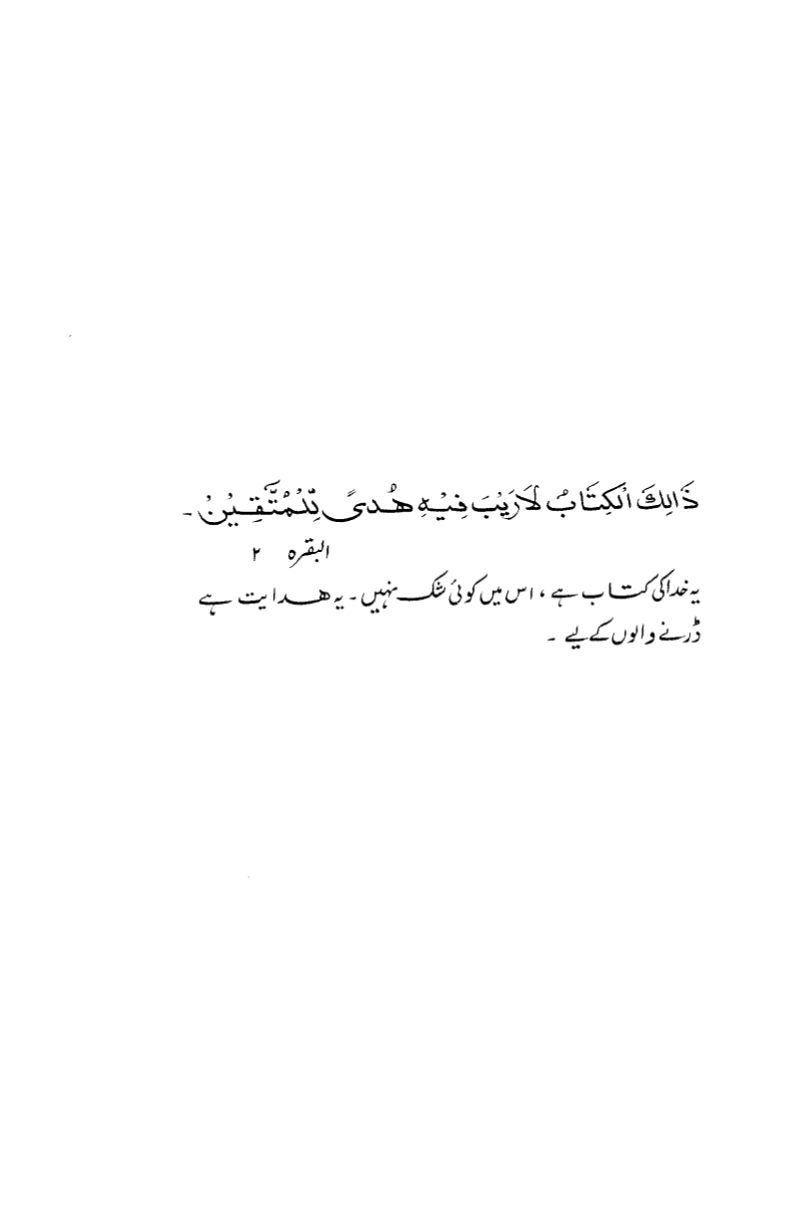 ذَالِكَ الْكِتَابُ لَارَيْبَ فِيْهِ هُدىً لِّلْمُتَّقِيْنْ ۔
البقرہ ۲
یہ خدا کی کتاب ہے ، اس میں کوئی شک نہیں ۔ یہ ھدایت ہے
ڈرنے والوں کے لیے ۔